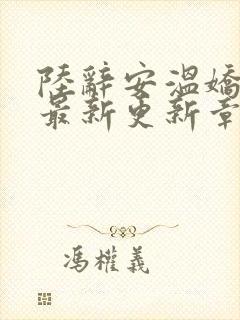 陸辭安溫嬌
最新更新章
馮權義